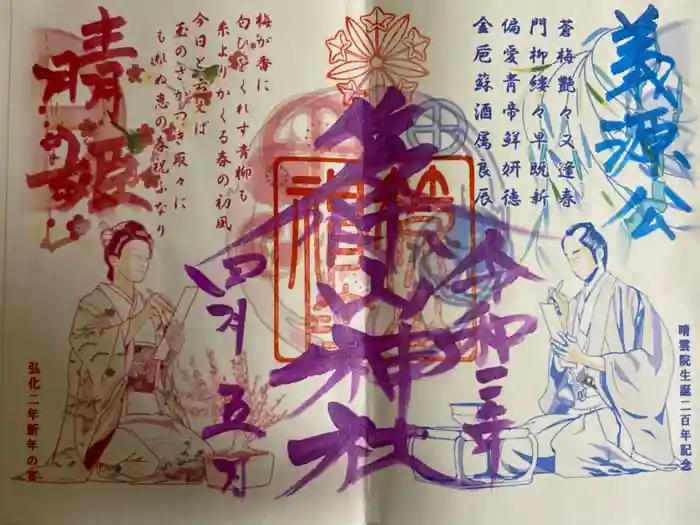 義源公
蒼梅艶々又逢春
門柳縷々早既新
偏愛青帝鮮妍徳
金巵蘇酒属良辰
晴雲院生誕二百年記念
令和三年
篠山神社
四月五日
梅が香に
匂ひをくれす青柳も
糸よりかくる春の初風
今日と云えば
玉のさかつき取々に
もれぬ恵の春祝ふなり
晴姫
弘化二年新年の宴